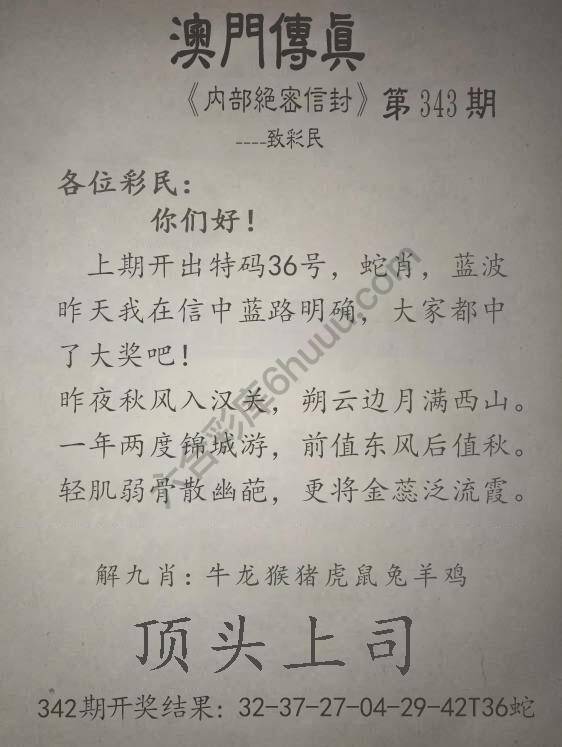 澳門傳眞
《内部絕密信封》第343期
----致彩民
各位彩民：
你们好！
上期开出特码36号，蛇肖，蓝波
昨天我在信中蓝路明确，大家都中
了大奖吧！
昨夜秋风入汉关，朔云边月满西山。
一年两度锦城游，前值东风后值秋。
轻肌弱骨散幽葩，更将金蕊泛流霞。
六合彩库6huuu.com
解九肖：牛龙猴猪虎鼠兔羊鸡
顶头上司
342期开奖结果：32-37-27-04-29-42T36蛇